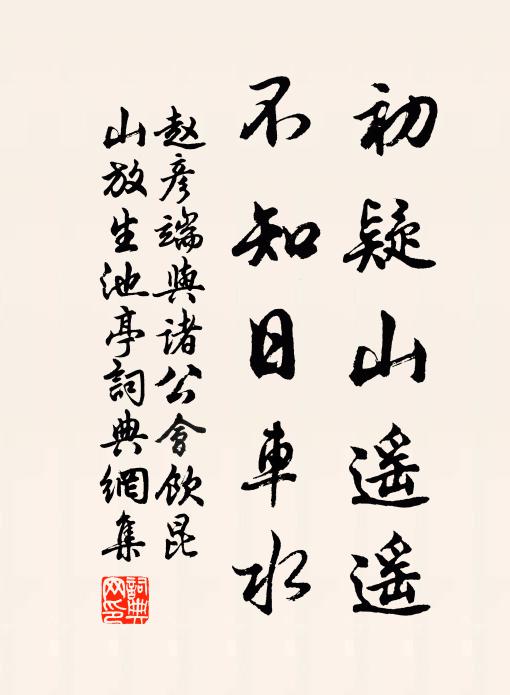 初疑山遥遥
不知日車水
赵彦端與诸公會飲昆
山放生池亭詞典網集
詞典
网印